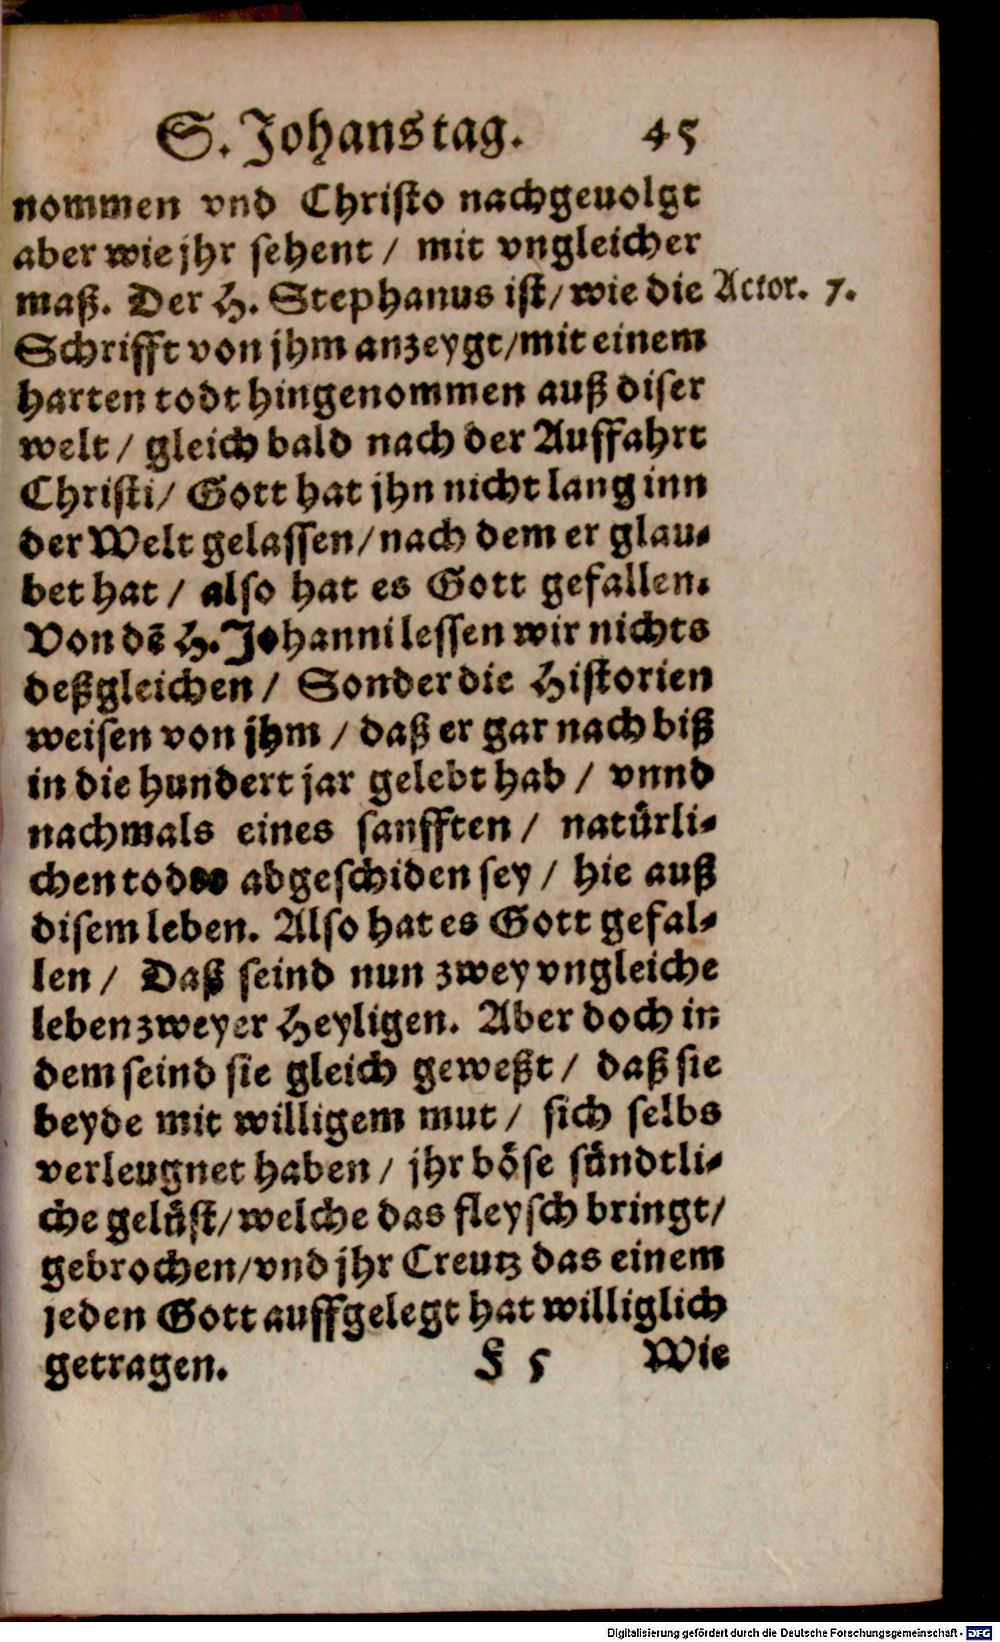 S. Johanstag. 45
nommen vnd Christo nachgeuolgt
aber wie jhr sehent / mit vngleicher
maß. Der H. Stephanus ist / wie die Actor. 7.
Schrifft von jhm anzeygt / mit einem
harten todt hingenommen auß diser
welt / gleich bald nach der Auffahrt
Christi / Gott hat jhn nicht lang inn
der Welt gelassen / nach dem er glau-
bet hat / also hat es Gott gefallen.
Von dē H. Johanni lessen wir nichts
deßgleichen / Sonder die Historien
weisen von jhm / daß er gar nach biß
in die hundert jar gelebt hab / vnnd
nachmals eines sanfften / natürli-
chen todes abgeschiden sey / hie auß
disem leben. Also hat es Gott gefal-
len / Daß seind nun zwey vngleiche
leben zweyer Heyligen. Aber doch in
dem seind sie gleich geweßt / daß sie
beyde mit willigem mut / sich selbs
verleugnet haben / jhr böse sündtli-
che gelüst / welche das fleysch bringt /
gebrochen / vnd jhr Creutz das einem
jeden Gott auffgelegt hat williglich
getragen. F 5 Wie
Digitalisierung gefördert durch die Deutsche Forschungsgemeinschaft - DFG